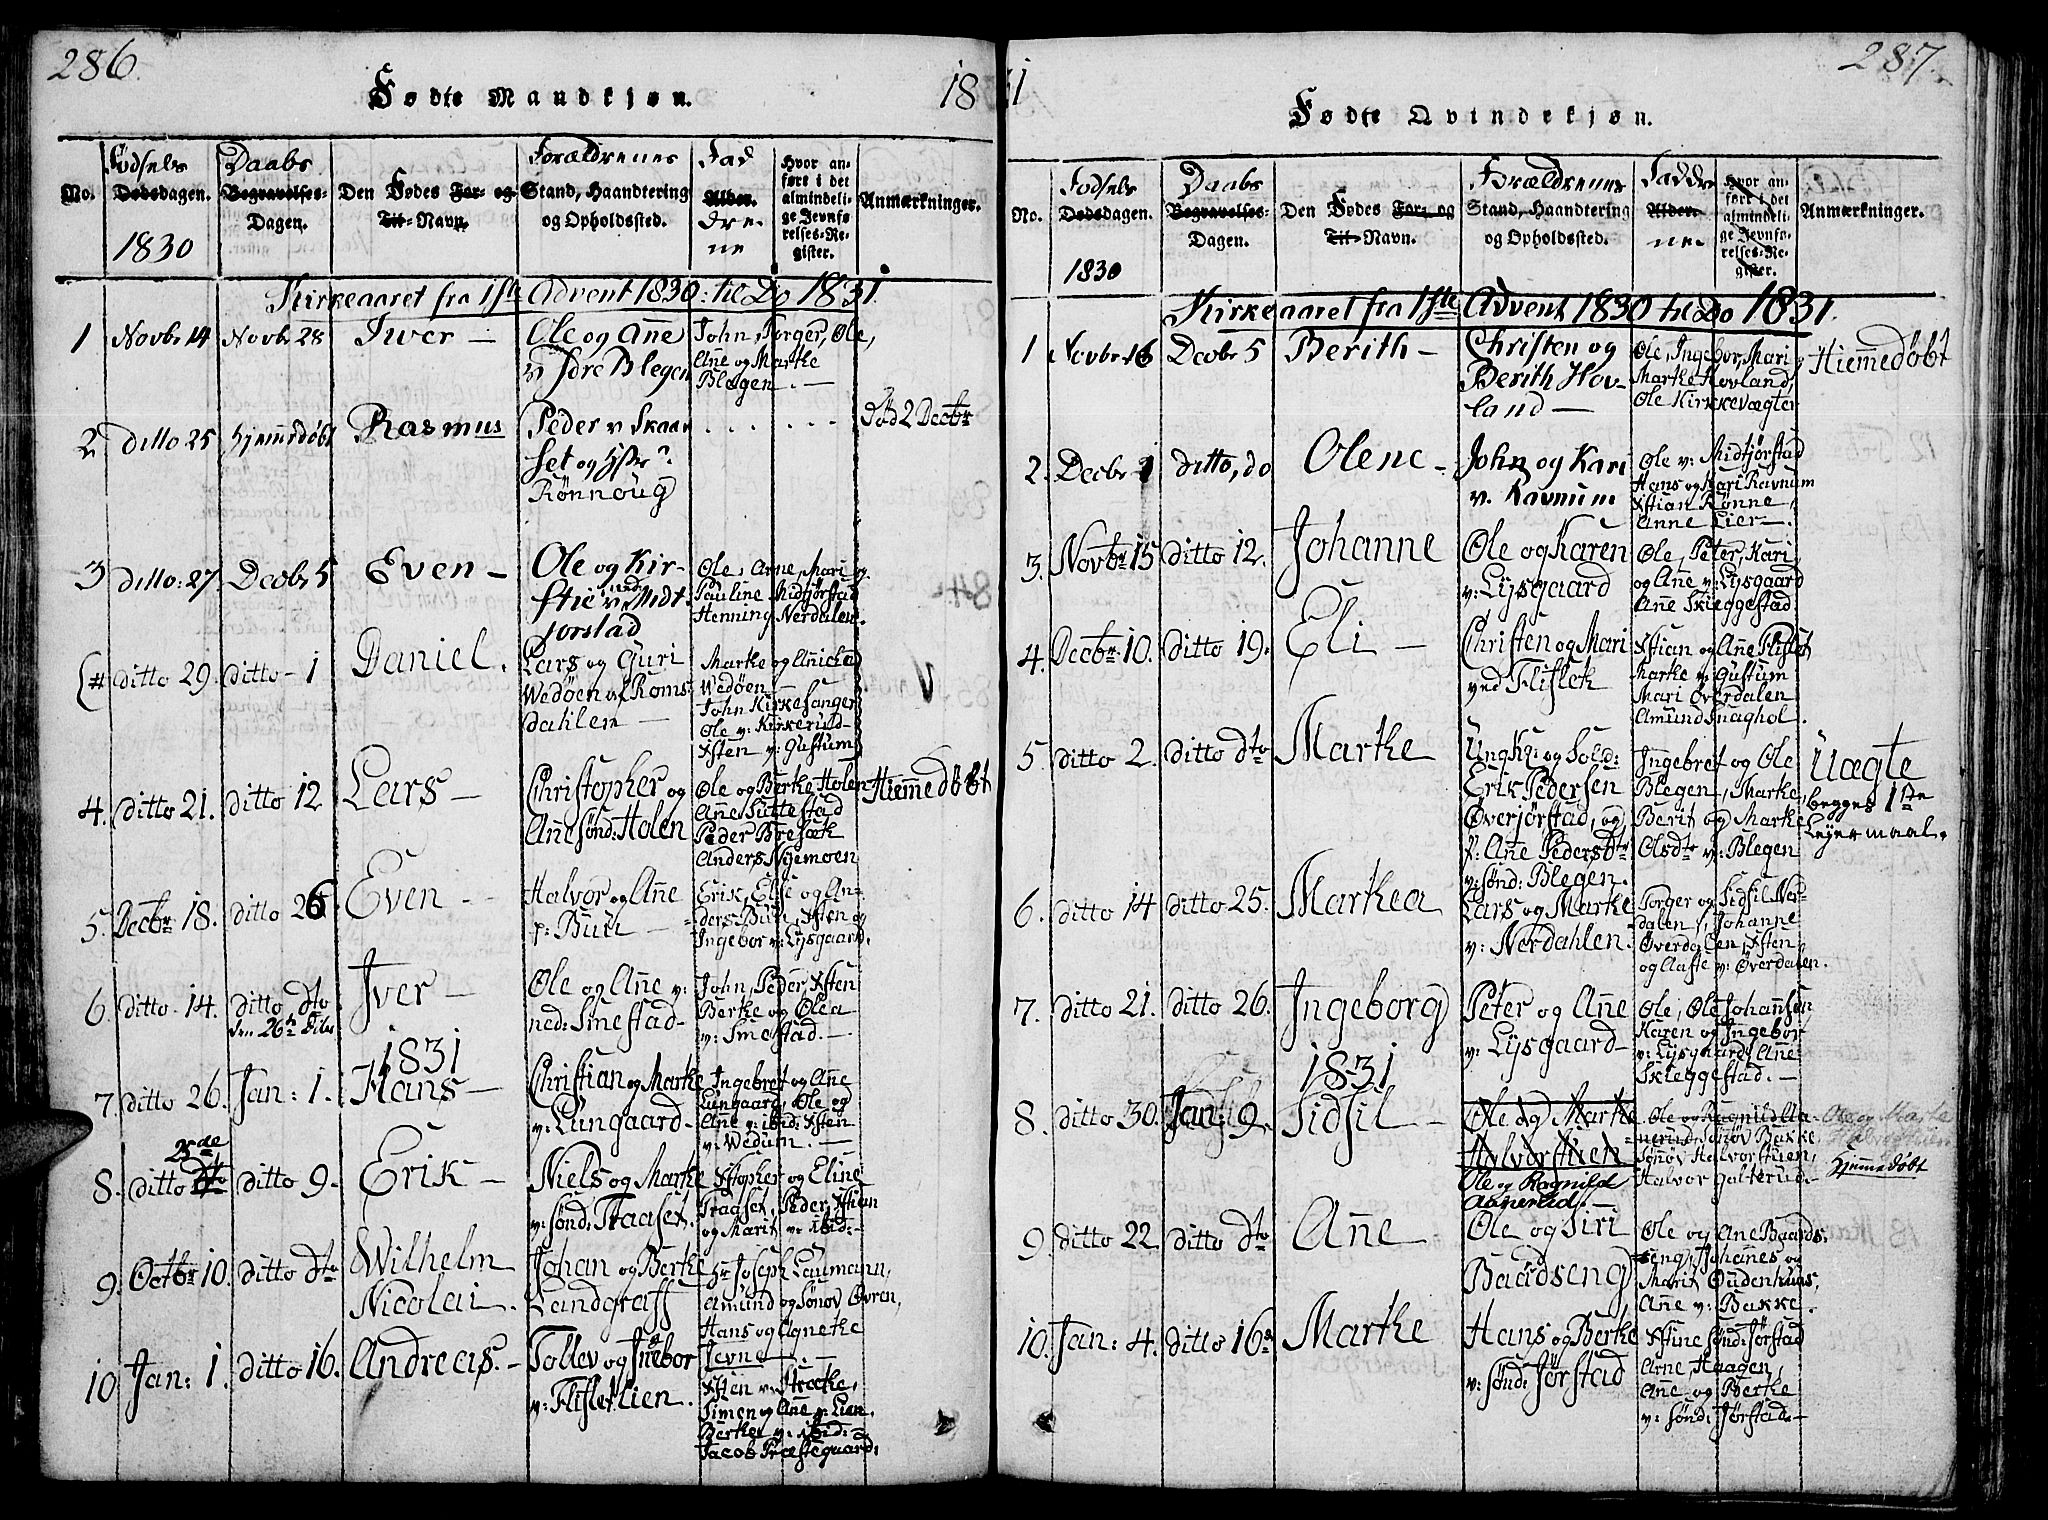 286.
Fødte Mandkjøn.
18
No.
Fødsels
Dødsdagen.
1830
Daabs
Begravelses-
Dagen.
Den Fødes For- og
Til-Navn.
Forældrenes
Stand, Haandtering
og Opholdssted.
Fad
Alder.
dre-
ne
Hvor an-
ført i det
almindeli-
ge Jevnfø-
relses-Re-
gister.
Anmærkninger.
Kirkeaaret fra 1ste Advent 1830 til Do 1831.
1 Novbr 14 Novbr 28 Iver —
Ole og Anne
v Sdre Blegen
John, Torger, Ole,
Ane og Marke
Blegen. —
2 ditto 25 Hjemmedøbt Rasmus
Peder v Skaar
set og
Rønnoug
. . . . . .
Død 2 Decbr
3 ditto: 27 Decbr 5 Even —
Ole og Kir-
stie v. Midt-
jorstad
Ole, Arne, Mari og
Pauline Midtjørstad
Henning Nerdalen.
(# ditto 29. ditto - 1 Daniel.
Lars og Guri
Wedøen af Roms-
dahlen —
Marke og Anicke
Wedøen
John Kirkesanger
Ole v: Kirkerud-
Xsten v: Gustum
V
4. ditto 21. ditto 12 Lars —
Christopher og
Anne sønd: Holen
Ole og Berke Holen
Anne Suttestad
Peder Bresæk
Anders Nyemoen
Hiemmedøbt
5. Decbr 18. ditto 26 Even -
Halvor og Anne
v: Buu -
Erik, Else og An-
ders Buu, Xsten og
Ingebor v: Lysgaard.
6. ditto 14. ditto dto Iver —
den 26de
Ole og Anne v:
ned: Smestad-
John, Peder, Xsten
Berke og Olea
v: Smestad. —
1831
7. ditto 26. Jan: 1. Hans —
Christian og Marke
v: Lungaard-
Ingebret og Anne
Lungaard, Ole og
Anne v: ibid: Xsten
v: Wedum. —
25de
8. ditto dto ditto 9. Erik —
Niels og Marke
v: sønd: Staaset.
Xstopher og Eline
Staaset, Peder, Xstian
og Marit v: ibid: -
9. Octbr 10. ditto dto Wilhelm
Nicolai.
Johan og Berke
Landgraff
Hr Joseph Laumann,
Amund og Sønov Øvren,
Hans og Agneke
Jevne —
10 Jan: 1. ditto 16. Andreas. -
Tollev og Ingebor
v: Flisletlien.
Xsten v: Stræke,
Simen og Anne v: Lien.
Berke v: ibid: -
Jacob Præstegaard:
287.
31
Fødte Qvindekjøn.
No.
Fødsels
Dødsdagen.
1830
Daabs
Begravelses-
Dagen.
Den Fødes For- og
Til-Navn.
Forældrenes
Stand, Haandtering
og Opholdssted.
Faddre
Alder.
ne
Hvor an-
ført i det
almindeli-
ge Jevnfø-
relses-Re-
gister.
Anmærkninger.
Kirkeaaret fra 1ste Advent 1830 til Do 1831.
1 Novbr 16 Decbr 5 Berith —
Christen og
Berith Hov-
land —
Ole, Ingebor, Mari,
Marke Hovland,
Ole Kirkevægter
Hiemmedøbt
2. Decbr 1 ditto, do Olene —
John og Kari
v. Ravnum
Ole v: Midtjørstad
Hans og Mari Ravnum
Xstian Rønne,
Anne Lier —.
3. Novbr 15 ditto 12. Johanne
Ole og Karen
v: Lysgaard
Ole, Peter, Kari
og Ane v: Lysgaard
Anne Skieggestad.
4. Decbr 10. ditto 19. Eli —
Christen og Mari
ved Flislet
Xstian og Anne Flislet
Marke v: Gustum
Mari Overdalen
Amund Snaghol.
5. ditto 2. ditto dto Marke
Ungk: og Sold:
Erik Pedersen
Øverjørstad, og
p: Anne Pedersdtr
v: sønd: Blegen.
Ingebret og Ole
Blegen, Marke,
Berit og Marke
Olsdtr v: Blegen
Uægte
begges 1ste
Lejermaal.
6. ditto 14 ditto 25. Markea
Lars og Marke
v: Nerdahlen.
Torger og Sidsil Ner-
dalen, Johanne
Øverdalen, Xsten
og Aaste v: Øverdalen.
7. ditto 21. ditto 26. Ingeborg
Peter og Anne
v: Lysgaard-
Ole, Ole Johannsen
Karen og Ingebor
v: Lysgaard, Anne
Skieggestad. —
1831
8. ditto 30. Jan: 9. Sidsil —
Ole og Marke
Halvorstuen
Ole og Ragnild
Aannerud. —
Ole og Ragnild Aa-
nerud, Sønov Bakke,
Sønøv Halvorstuen,
Halvor Galterud. -
Ole og Marke
Halvorstuen
Hjemmedøbt
9. ditto 22 ditto dto Anne
Ole og Siri
Baadseng
Ole og Ane Baads-
eng, Johannes og
Marit Oudenhuus,
Anne v: Bakke.
10. Jan: 4. ditto 16. Marke
Hans og Berke
v: sønd: Jørstad
Xstine sønd: Jørstad
Arne Haagen,
Anne og Berke
v: sønd: Jørstad. -